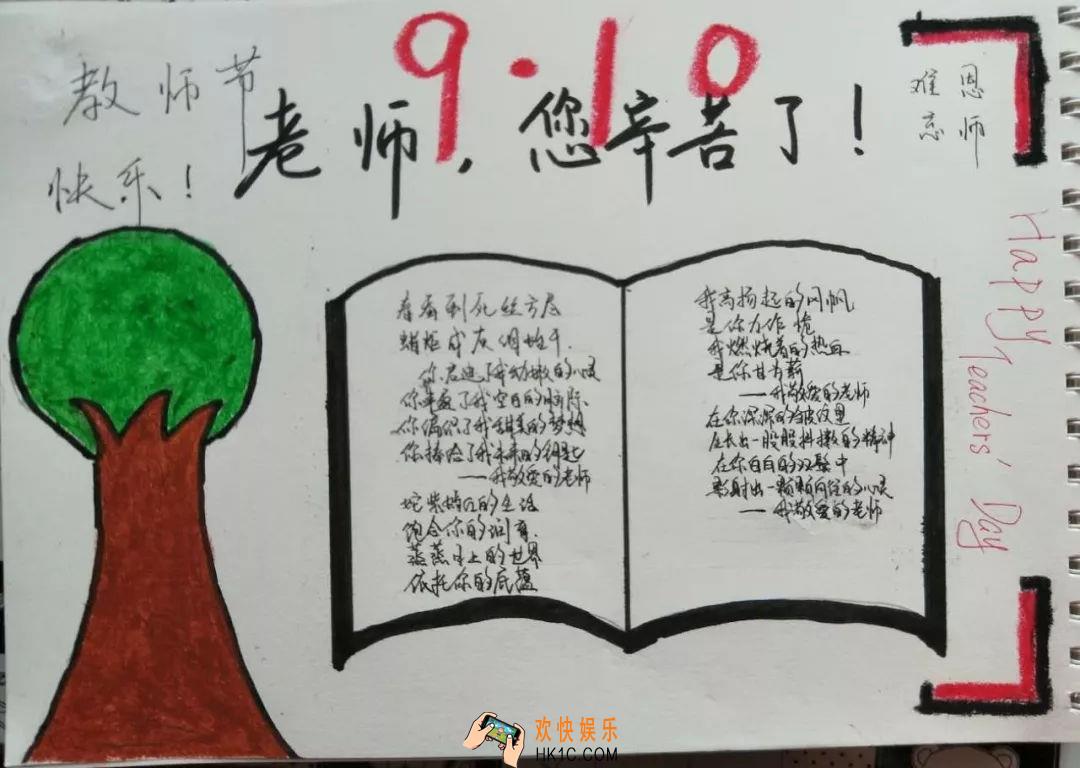 9·10
教师节
快乐！
老师，您辛苦了！
恩师
难忘
Happy Teachers' Day
春蚕到死丝方尽
蜡炬成灰泪始干
你启迪了我幼嫩的心灵
你丰盈了我空白的脑际
你编织了我甜美的梦想
你捧给了我未来的钥匙
——我敬爱的老师
的生活
饱含你的润育
蒸蒸日上的世界
依托你的底蕴
我高扬起的风帆
是你力作桅
我燃烧着的热血
是你甘为薪
——我敬爱的老师
在你深深的皱纹里
生长出一股股抖擞的精神
在你白白的双鬓中
影射出一颗颗向往的心灵
——我敬爱的老师
欢快娱乐
HK1C.COM